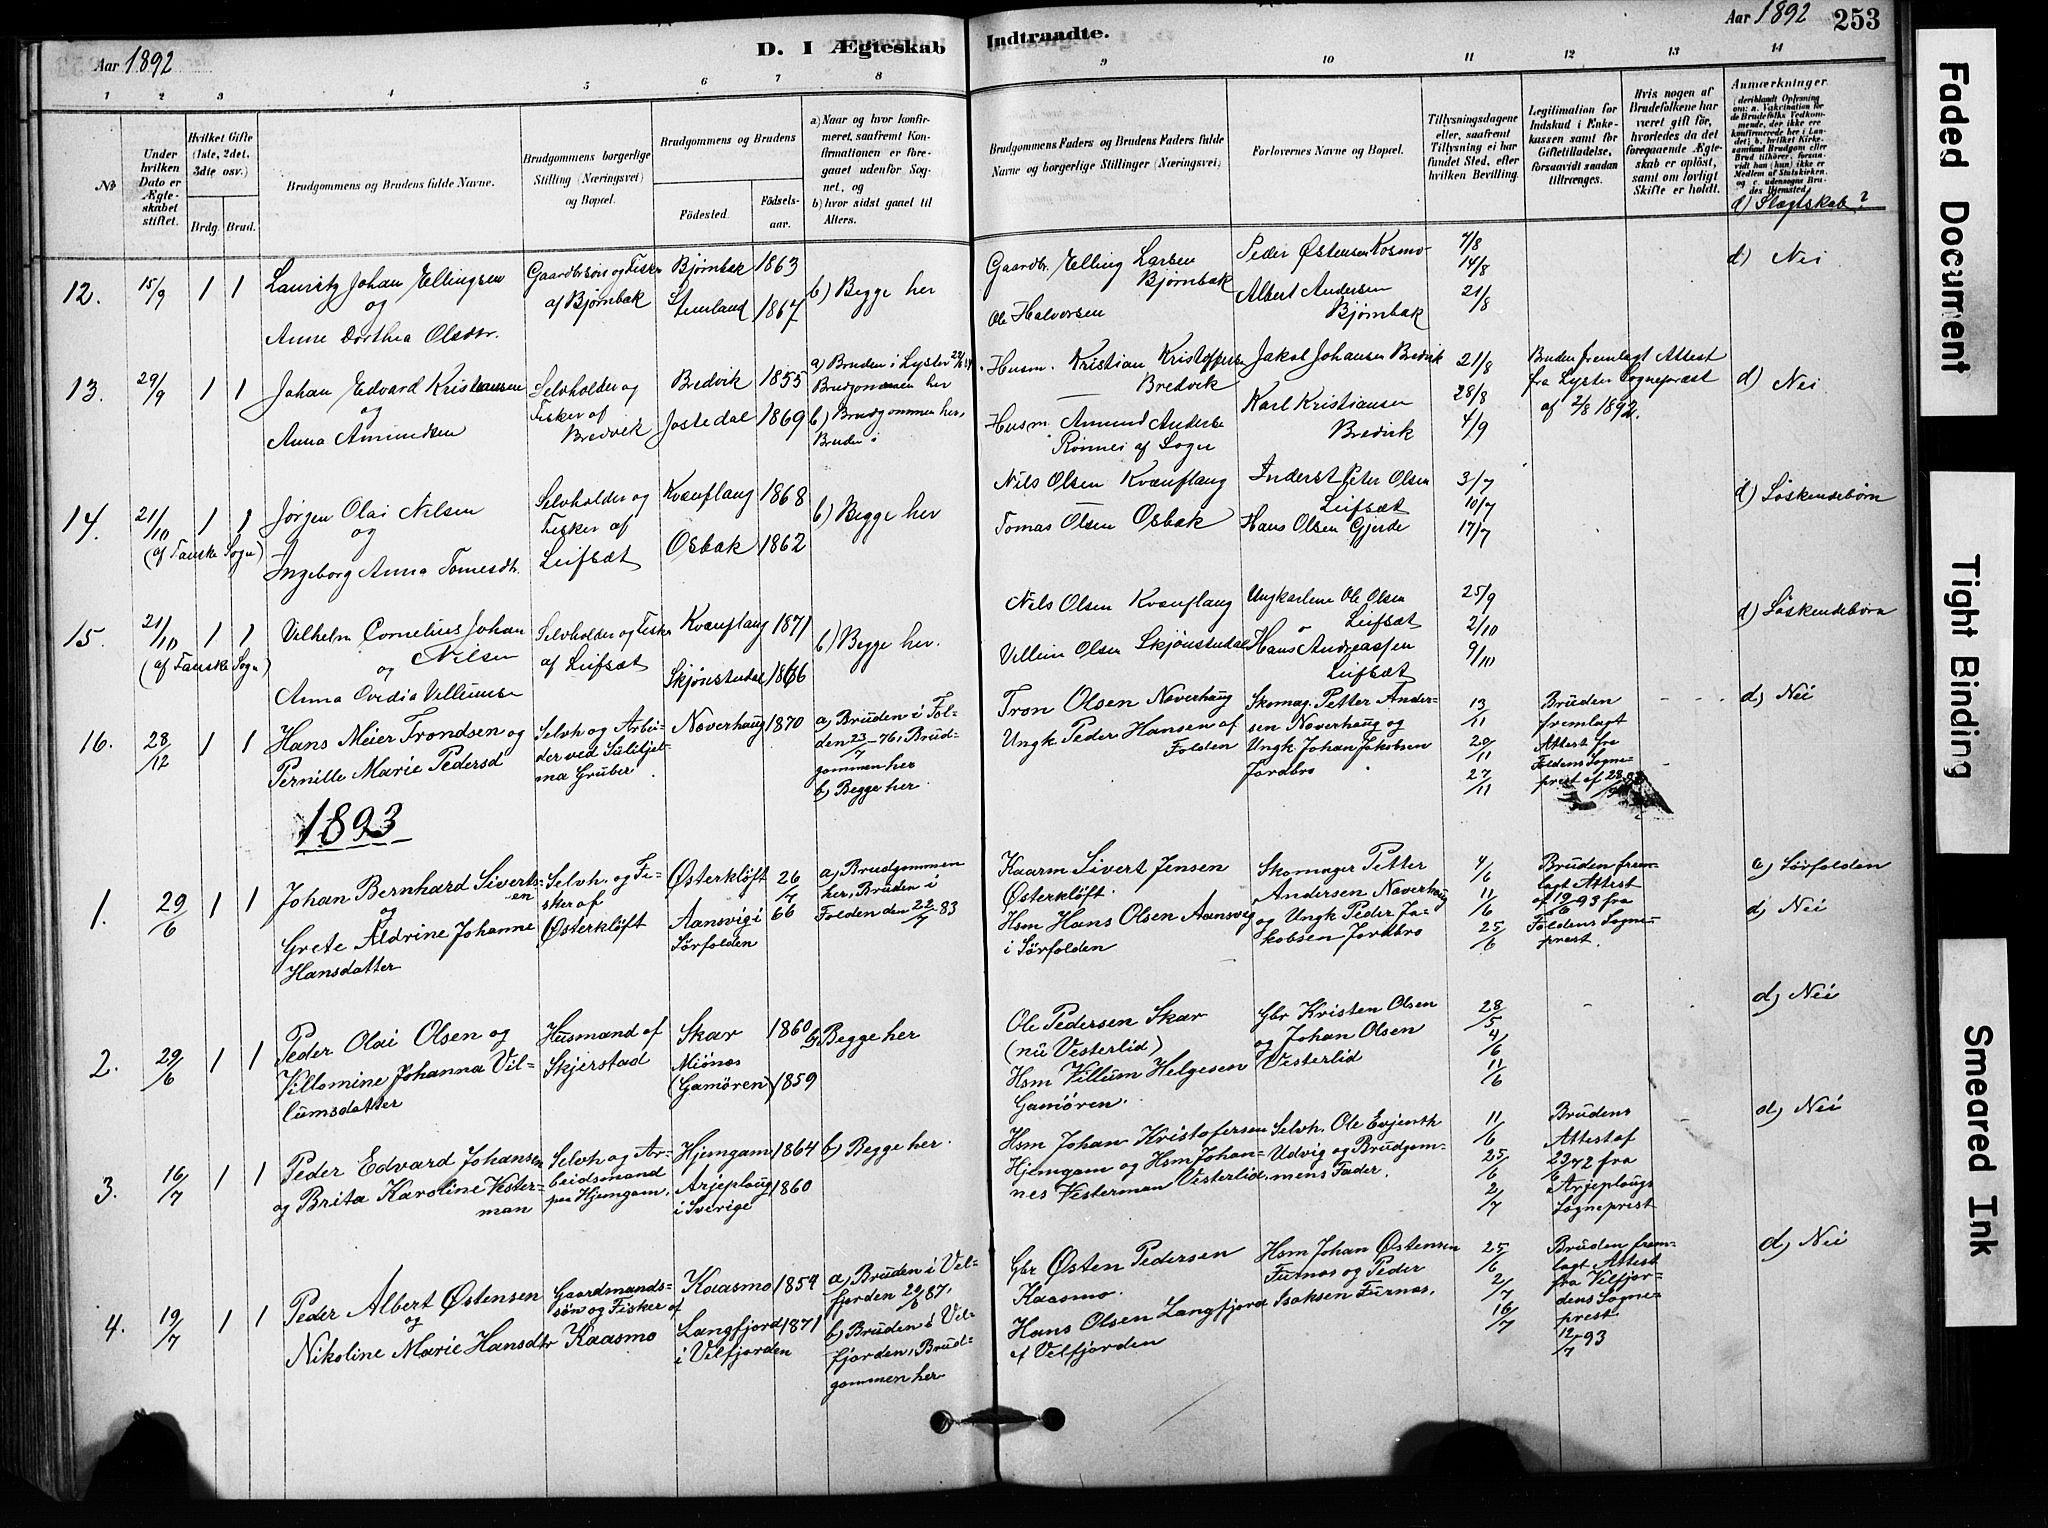 Aar 1892
D. I Ægteskab Indtraadte.
Aar 1892 253
1 2 3 4 5 6 7 8 9 10 11 12 13 14
No
Under hvilken Dato er Ægteskabet stiftet.
Hvilket Gifte (1ste, 2det, 3dte osv.)
Brdg. Brud.
Brudgommens og Brudens fulde Navne.
Brudgommens borgerlige Stilling (Næringsvei) og Bopæl.
Brudgommens og Brudens
Fødested. Fødselsaar.
a) Naar og hvor konfirmeret, saafremt Konfirmationen er foregaaet udenfor Sognet, og
b) hvor sidst gaaet til Alters.
Brudgommens Faders og Brudens Faders fulde Navne og borgerlige Stillinger (Næringsvei)
Forlovernes Navne og Bopæl.
Tillysningsdagene eller, saafremt Tillysning ei har fundet Sted, efter hvilken Bevilling.
Legitimation for Indskud i Enkekassen samt for Giftetilladelse, forsaavidt saadan tiltrænges.
Hvis nogen af Brudefolkene har været gift før, hvorledes da det foregaaende Ægteskab er opløst, samt om lovligt Skifte er holdt.
Anmærkninger
(deriblandt Oplysning om: a. Vakcination for de Brudefolks Vedkommende, der ikke ere konfirmerede her i Landet; b. hvilket Kirkesamfund Brudgom eller Brud tilhører, forsaavidt han (hun) ikke er Medlem af Statskirken, og c. udensogns Brudes Hjemsted)
d) Slægtskab?
12. 15/9 1 1
Lauritz Johan Ellingsen
og
Anne Dorthea Olsdtr.
Gaardbrsøn og Fisker
af Bjørnbak
Bjørnbak 1863
1867
b) Begge her
Gaardbr. Elling Larsen
Bjørnbak
Ole Halvorsen
Peder Østensen Kosmo
Albert Andersen
Bjørnbak
7/8
14/8
21/8
d) Nei
13. 29/9 1 1
Johan Edvard Kristiansen
og
Anna Amundsen
Selvholder og
Fisker af
Bredvik
Bredvik 1855
Jostedal 1869
a) Bruden i Lyster
Brudgommen her
b) Brudgommen her,
Bruden i
Husm. Kristian Kristoffersen
Bredvik
Husm. Amund Anderse
Rønnei af Sogn
Jakob Johansen Bredvik
Karl Kristiansen
Bredvik
21/8
28/8
4/9
Bruden fremlagt Attest
fra Lyster Sognepræst
af 2/8 1892.
d) Nei
14. 21/10 1 1
(af Fauske Sogn)
Jørgen Olai Nilsen
og
Ingeborg Anna Tomesdt.
Selvholder og
Fisker af
Leifsæt
Kvænflang 1868
Osbak 1862
b) Begge her
Nils Olsen Kvænflang
Tomas Olsen Osbak
Anderst Peter Olsen
Leifsæt
Hans Olsen Gjerde
3/7
10/7
17/7
d) Søskendebørn
15. 21/10 1 1
(af Fauske Sogn)
Vilhelm Cornelius Johan
og Nilsen
Anna Ovidia Villumse
Selvholder og Fisker
af Leifsæt
Kvænflang 1871
Skjønstudal 1866
b) Begge her.
Nils Olsen Kvænflang
Villein Olsen Skjønstudal
Ungkarlene Ole Olsen
Leifsæt
Hans Andreassen
Leifsæt
25/9
2/10
9/10
d) Søskendebørn
16. 28/12 1 1
Hans Meier Trondsen og
Pernille Marie Pedersd
Selvh og Arbei-
der ved Sulitjel-
ma Gruber.
Noverhaug 1870
a) Bruden i Fol-
den 23/7 76, Brud-
gommen her
b) Begge her
Tron Olsen Noverhaug
Ungk Peder Hansen af
Folden
Skomag. Petter Ander-
sen Noverhaug og
Ungk Johan Jakobsen
Jordbro
13/11
20/11
27/11
Bruden
fremlagt
Attest fra
Foldens Sogne-
prest af
d) Nei
1893
1. 29/6 1 1
Johan Bernhard Siverts-
en
og
Grete Aldrine Johanne
Hansdatter
Selvh. og Fi-
sker af
Østerkløft
Østerkløft 26/7
Aansvig i 66
Sørfolden
a) Brudgommen
her, Bruden i
Folden den 22/7 83
Kaarm Sivert Jensen
Østerkløft.
Hsm Hans Olsen Aansvig
i Sørfolden
Skomager Petter
Andersen Noverhaug
og Ungk Peder Ja-
kobsen Jordbro
4/6
11/6
25/6
Bruden frem-
lagt Attest
af 19/6 93 fra
Foldens Sogne-
prest.
c) Sørfolden
d) Nei
2. 29/6 1 1
Peder Olai Olsen og
Villomine Johanna Vil-
lumsdatter
Husmand af
Skjerstad
Skar 1860
Miønes
(Gamøren) 1859
b) Begge her
Ole Pedersen Skar
(nu Vesterlid)
Hsm Villum Helgesen
Gamøren.
Gbr Kristen Olsen
og Johan Olsen
Vesterlid
28/5
4/6
11/6
d) Nei
3. 16/7 1 1
Peder Edvard Johansen
og Brita Karoline Vester-
man
Selvh og Ar-
beidsmand
paa Hjemgam.
Hjemgam 1864
Arjeploug 1860
i Sverige
b) Begge her.
Hsm Johan Kristofersen
Hjemgam og Hsm Johan-
nes Vesterman Vesterlid
Selvh. Ole Evjenth
Udvig og Brudgom-
mens Fader.
11/6
25/6
2/7
Brudens
Attest af
fra
Arjeplougs
Sogneprest
d) Nei
4. 19/7 1 1
Peder Albert Østensen
og
Nikoline Marie Hansdtr
Gaardmands-
søn og Fisker af
Kaasmo
Kaasmo 1854
Langfjord 1871
i Velfjorden
a) Bruden i Vel-
fjorden 29/6 87.
b) Bruden i Vel-
fjorden, Brud-
gommen her
Gbr Østen Pedersen
Kaasmo.
Hans Olsen Langfjord
af Velfjorden
Hsm Johan Østensen
Furnes og Peder
Isaksen Furnes.
25/6
2/7
16/7
Bruden frem-
lagt Attest
fra Velfjor-
dens Sogne-
prest
12/7 93
d) Nei
Faded Document
Tight Binding
Smeared Ink